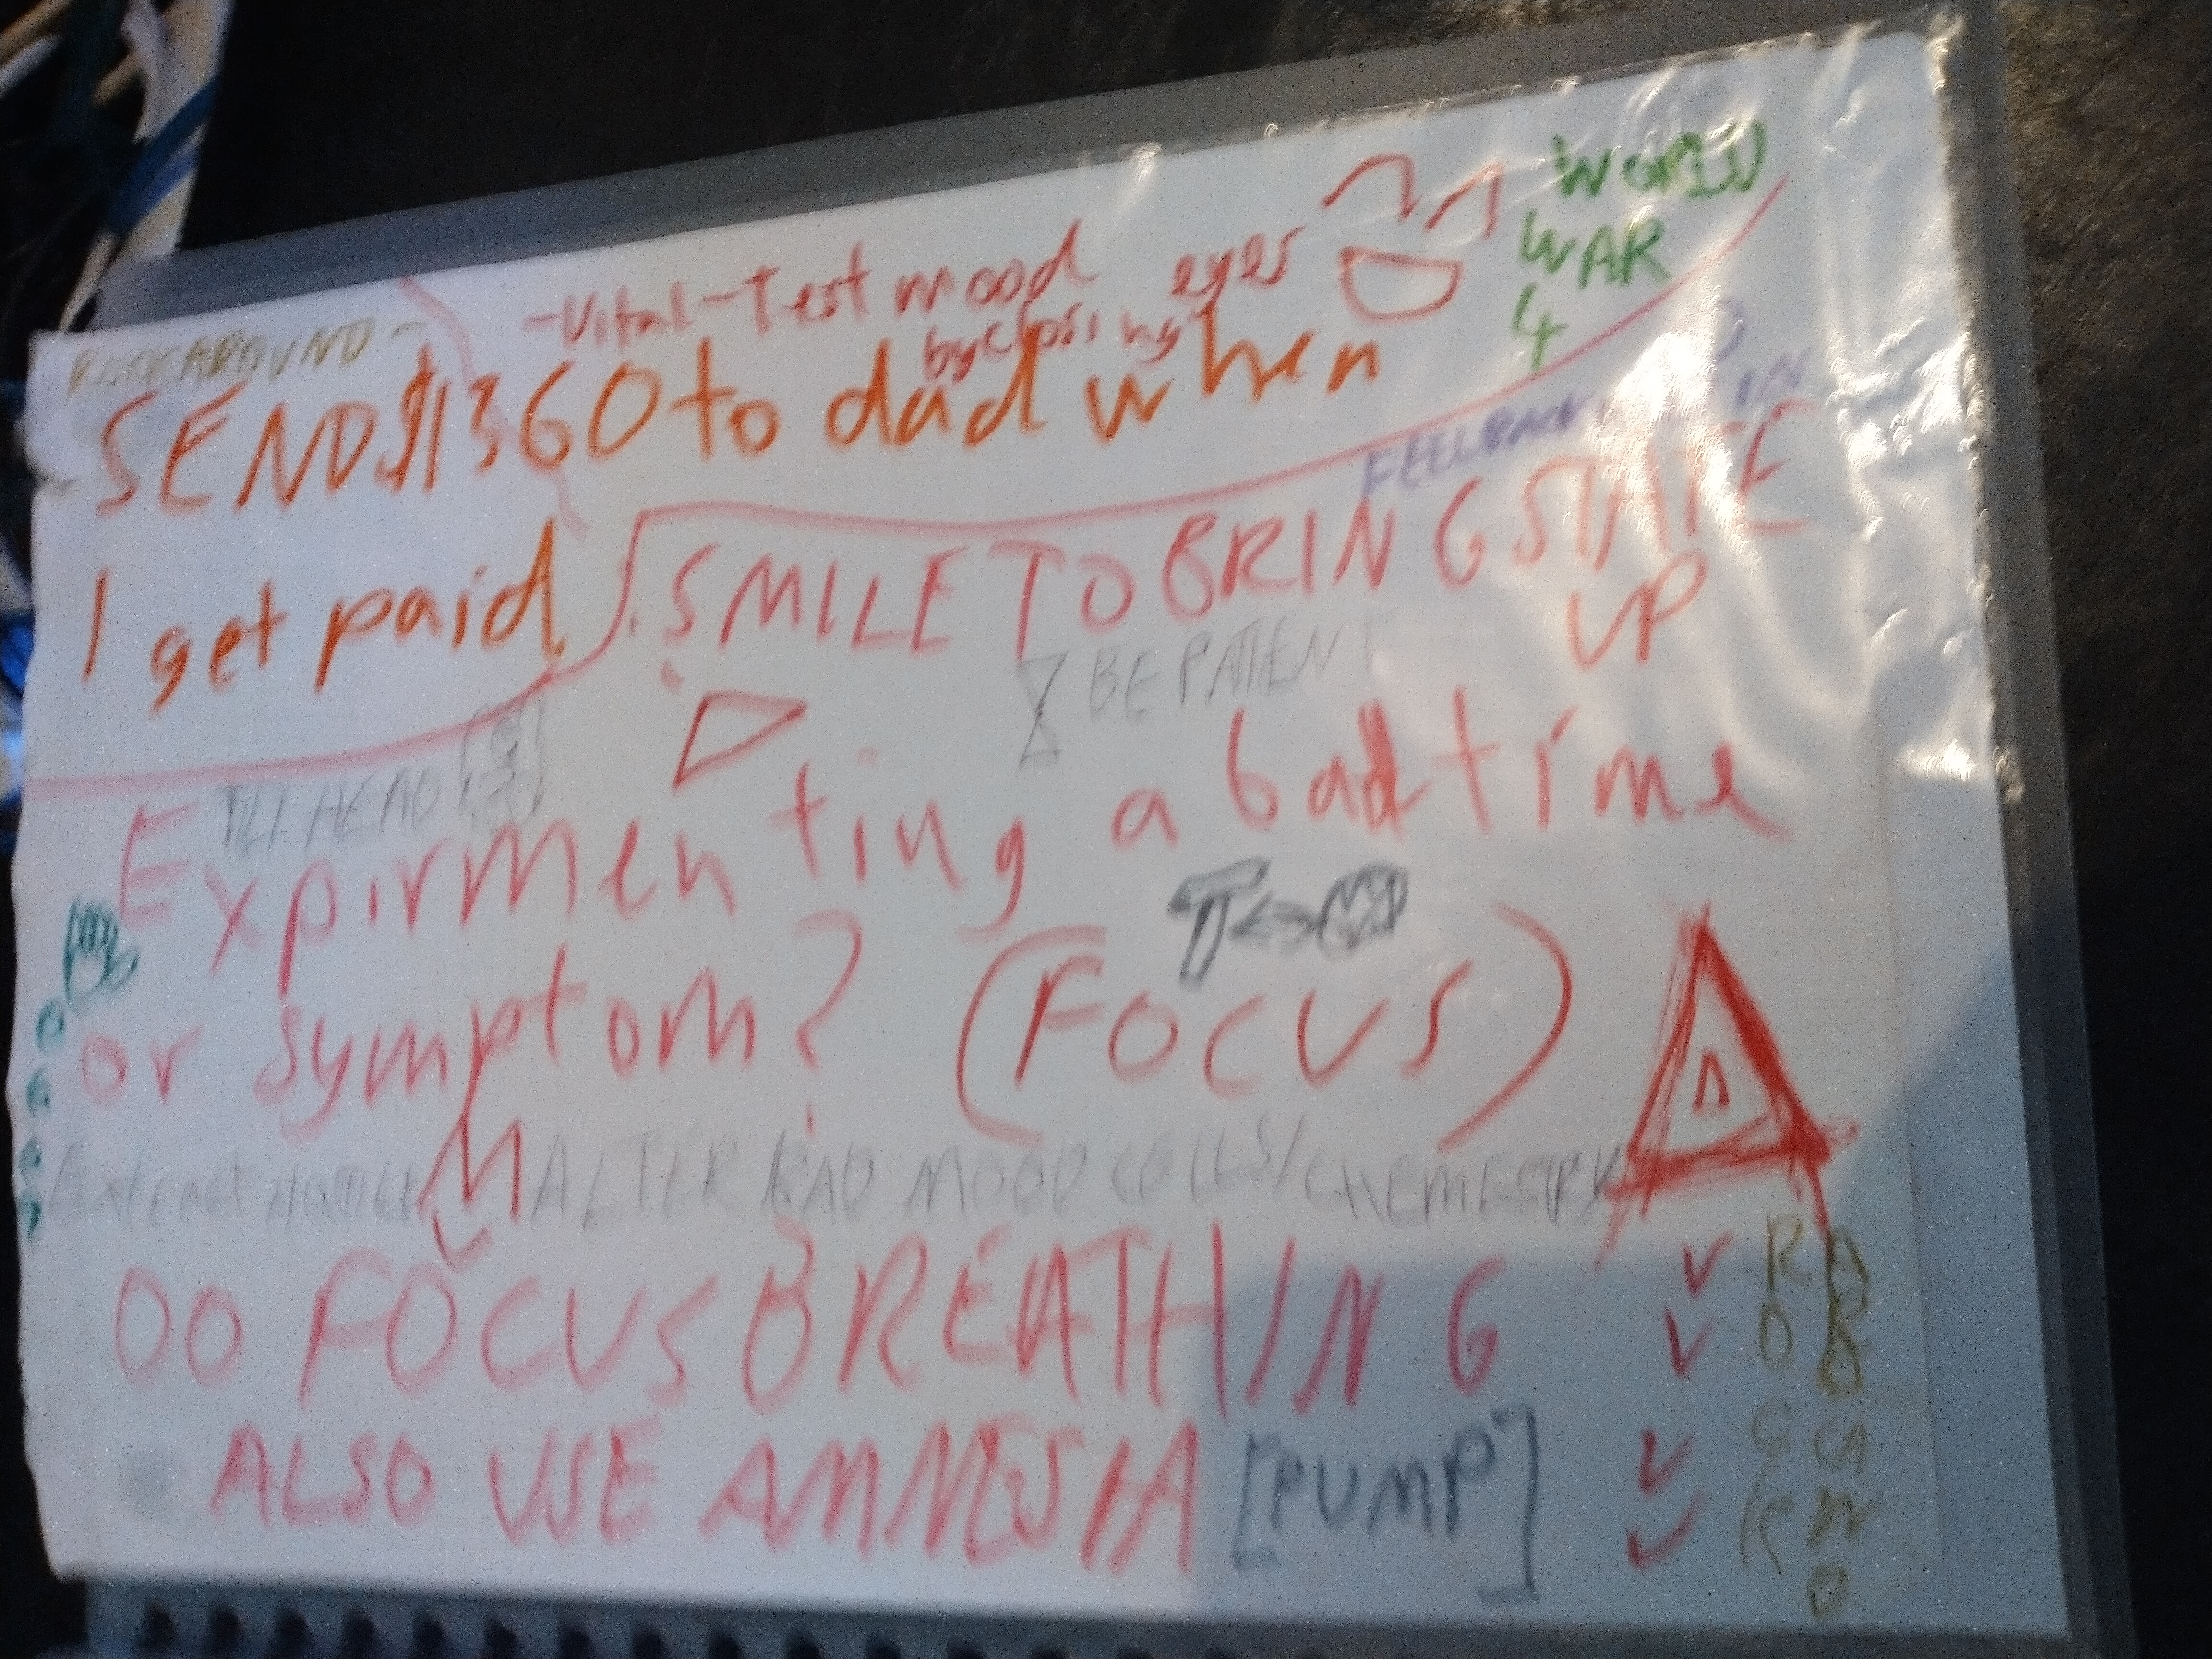 ROCKAROUND -
-Vital-Test mood
by closing eyes
WORLD
WAR
4
SEND $1360 to dad when
I get paid.
FEEL
IN
SMILE TO BRING STATE
UP
BE PATIENT
TILT HEAD
Expirmenting a bad time
or symptom? (FOCUS)
T<->
Extract HOSTILE
ALTER BAD MOOD CELLS/CHEMESTRY
DO FOCUS BREATHING
ALSO USE AMNESIA [PUMP]
ROCK
AROUND